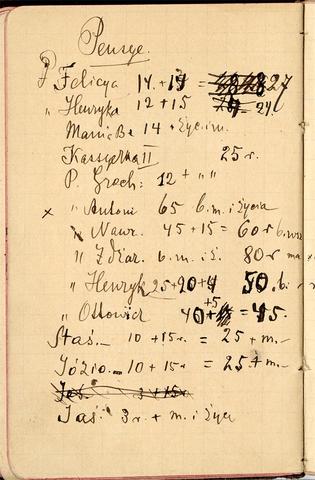 Pensye.
P Felicya 14 + 19 = 27
" Henryka 12 + 15 = 27.
Mania Be 14 +
Kassyerka II 25 r.
P. Groch: 12 + " "
x " Antoni 65 b. m. i życia
" Nawr. 45 + 15 = 60 r b.
" Zdżar. b. m. i ż. 80 r
" Henryk 25+20+4 50. b.
" Ottowicz 40 +5 = 45.
Staś.. 10 + 15 r. = 25 + m. -
Józio.. 10 + 15 r = 25 + m. -
Jaś. 3 + 15 r
Jaś. 3 r. + m. i życ